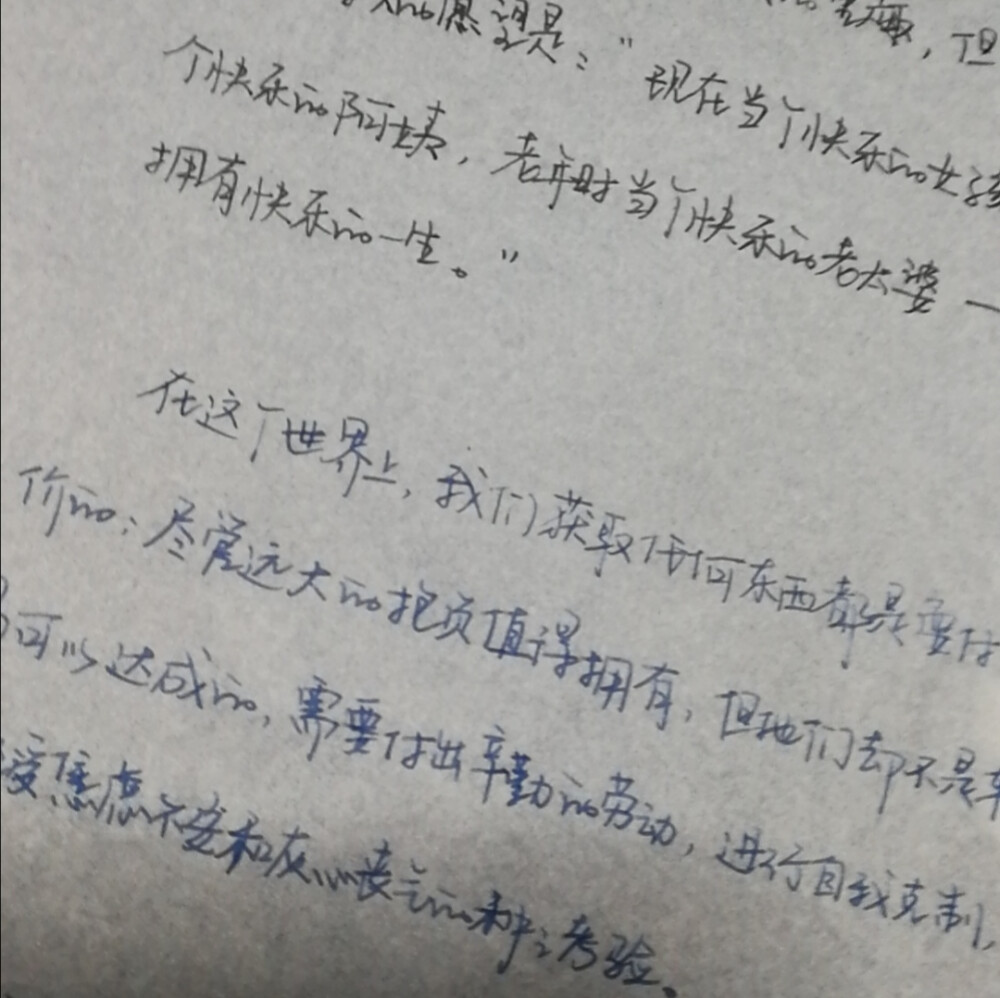 人的愿望是：“现在当个快乐的女孩
个快乐的阿姨，老年时当个快乐的老太婆一
拥有快乐的一生。”
在这个世界上，我们获取任何东西都是要付
价的；尽管远大的抱负值得拥有，但她们却不是轻
可以达成的，需要付出辛勤的劳动，进行自我克制，
受焦虑不安和灰心丧气的种种考验。